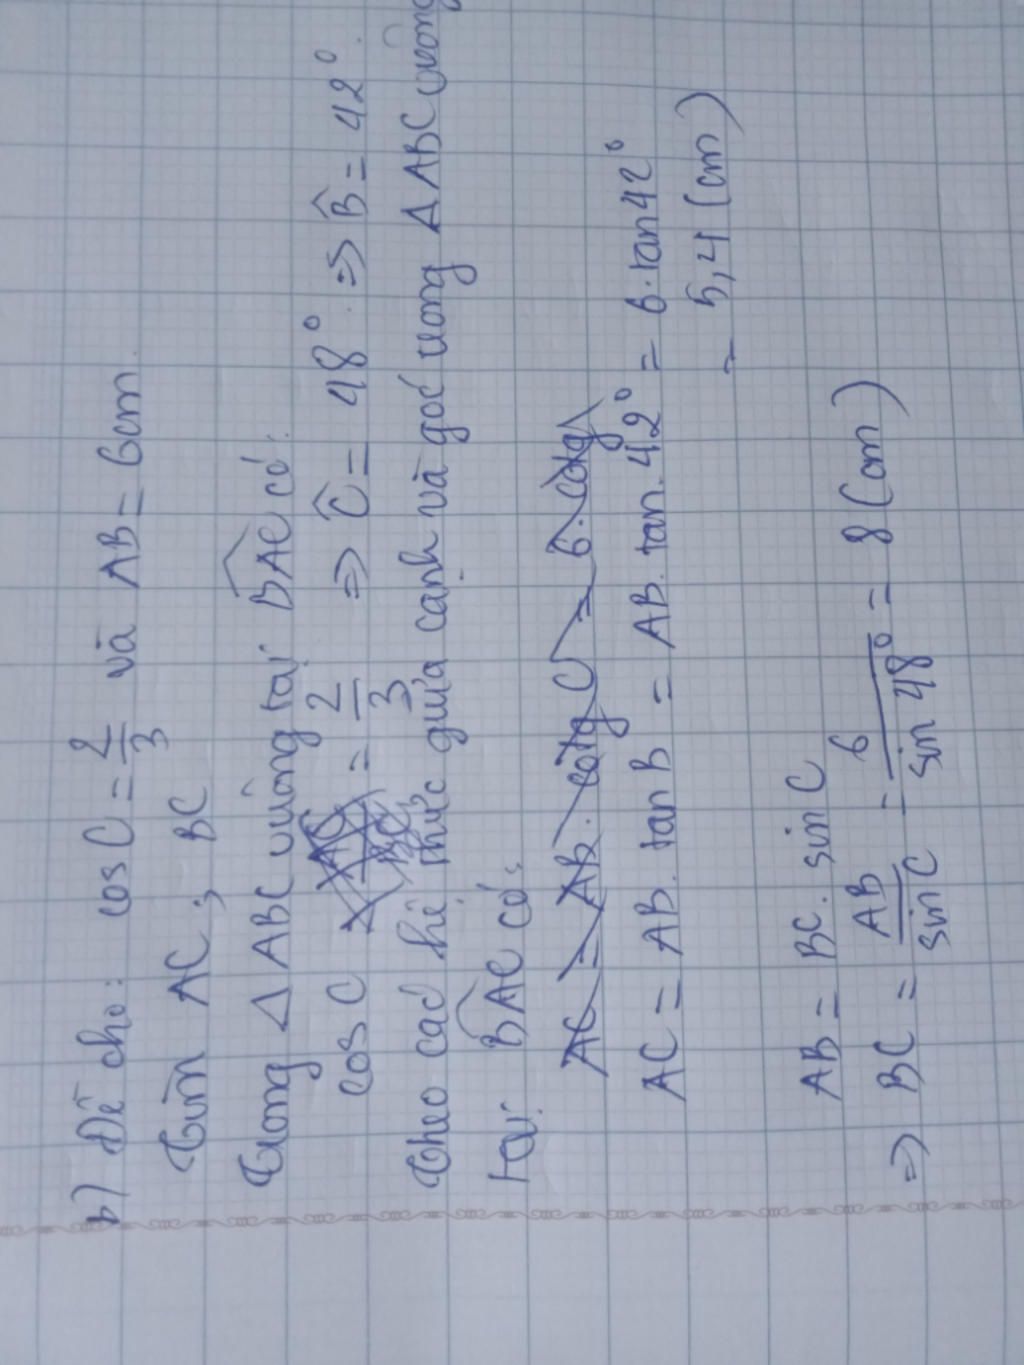 b) Đề cho: cos C = 2/3 và AB = 6cm.
Tìm AC; BC
Trong Δ ABC vuông tại BAC có:
cos C = 2/3 ⇒ Ĉ = 48°. ⇒ B̂ = 42°.
Theo các hệ thức giữa cạnh và góc trong Δ ABC vuông
tại BAC có:
AC = AB. cotg C = 6. cotg
AC = AB. tan B = AB. tan. 42° = 6. tan 42°
= 5,4 (cm)
AB = BC. sin C
⇒ BC = AB/sin C = 6/sin 48° = 8 (cm)